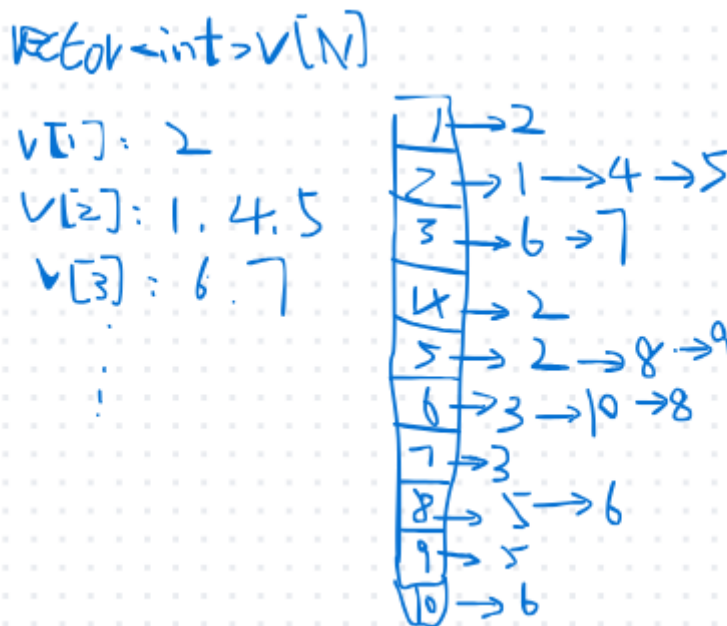 vector<int>v[N]
v[1]: 2
v[2]: 1, 4, 5
v[3]: 6, 7
1→2
2→1→4→5
3→6→7
4→2
5→2→8→9
6→3→10→8
7→3
8→5→6
9→5
10→6